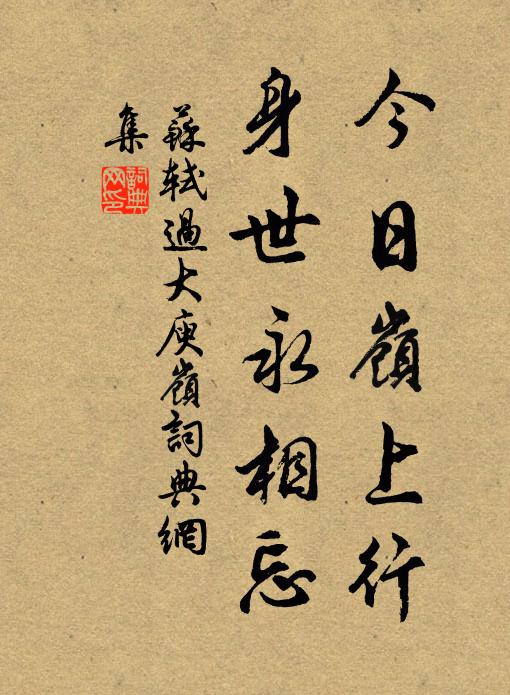 今日嶺上行
身世永相忘
蘇軾過大庾嶺詞典網
集
詞典
网印